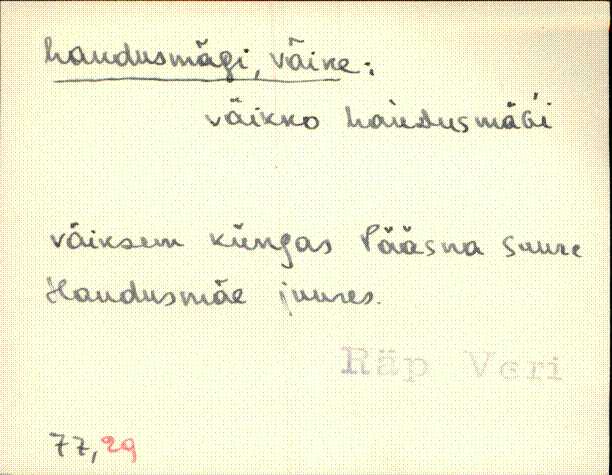 haudusmägi, väike:
väikko haúdusmäǴi
väiksem küngas Pääsna Suure
Haudusmäe juures.
Räp Veri
77, 29